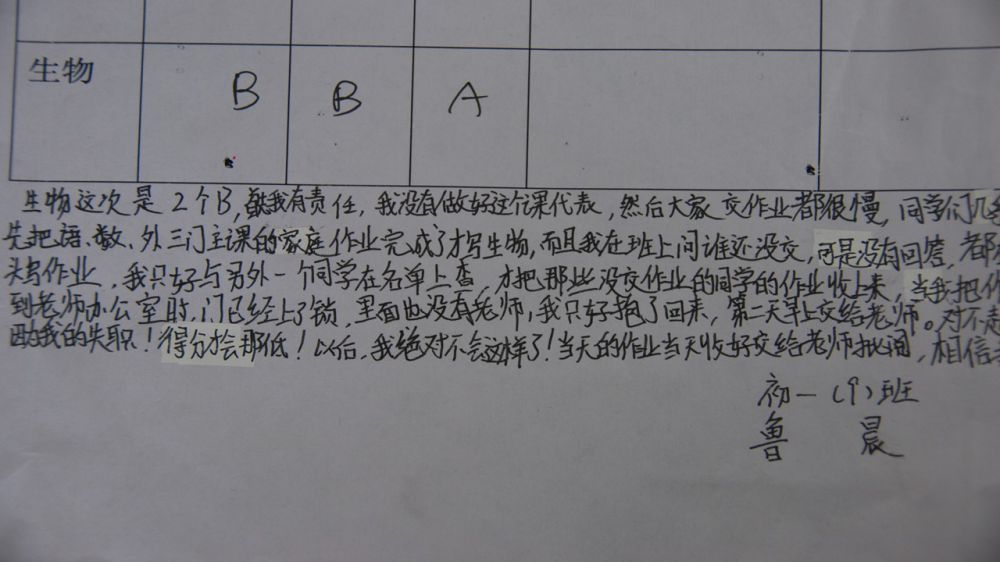 生物 B B A
生物这次是2个B,就我有责任,我没有做好这个课代表,然后大家交作业都很慢,同学们几
先把语、数、外三门主课的家庭作业完成了才写生物,而且我在班上问谁还没交,可是没有回答,都
头写作业,我只好与另外一个同学在名单上查,才把那些没交作业的同学的作业收上来,当我把作
到老师办公室时,门已经上了锁,里面也没有老师,我只好抱了回来,第二天早上交给老师。对不起
因为我的失职!得分才会那低!以后,我绝对不会这样了!当天的作业当天收好交给老师批阅,相信
初一(9)班
鲁晨